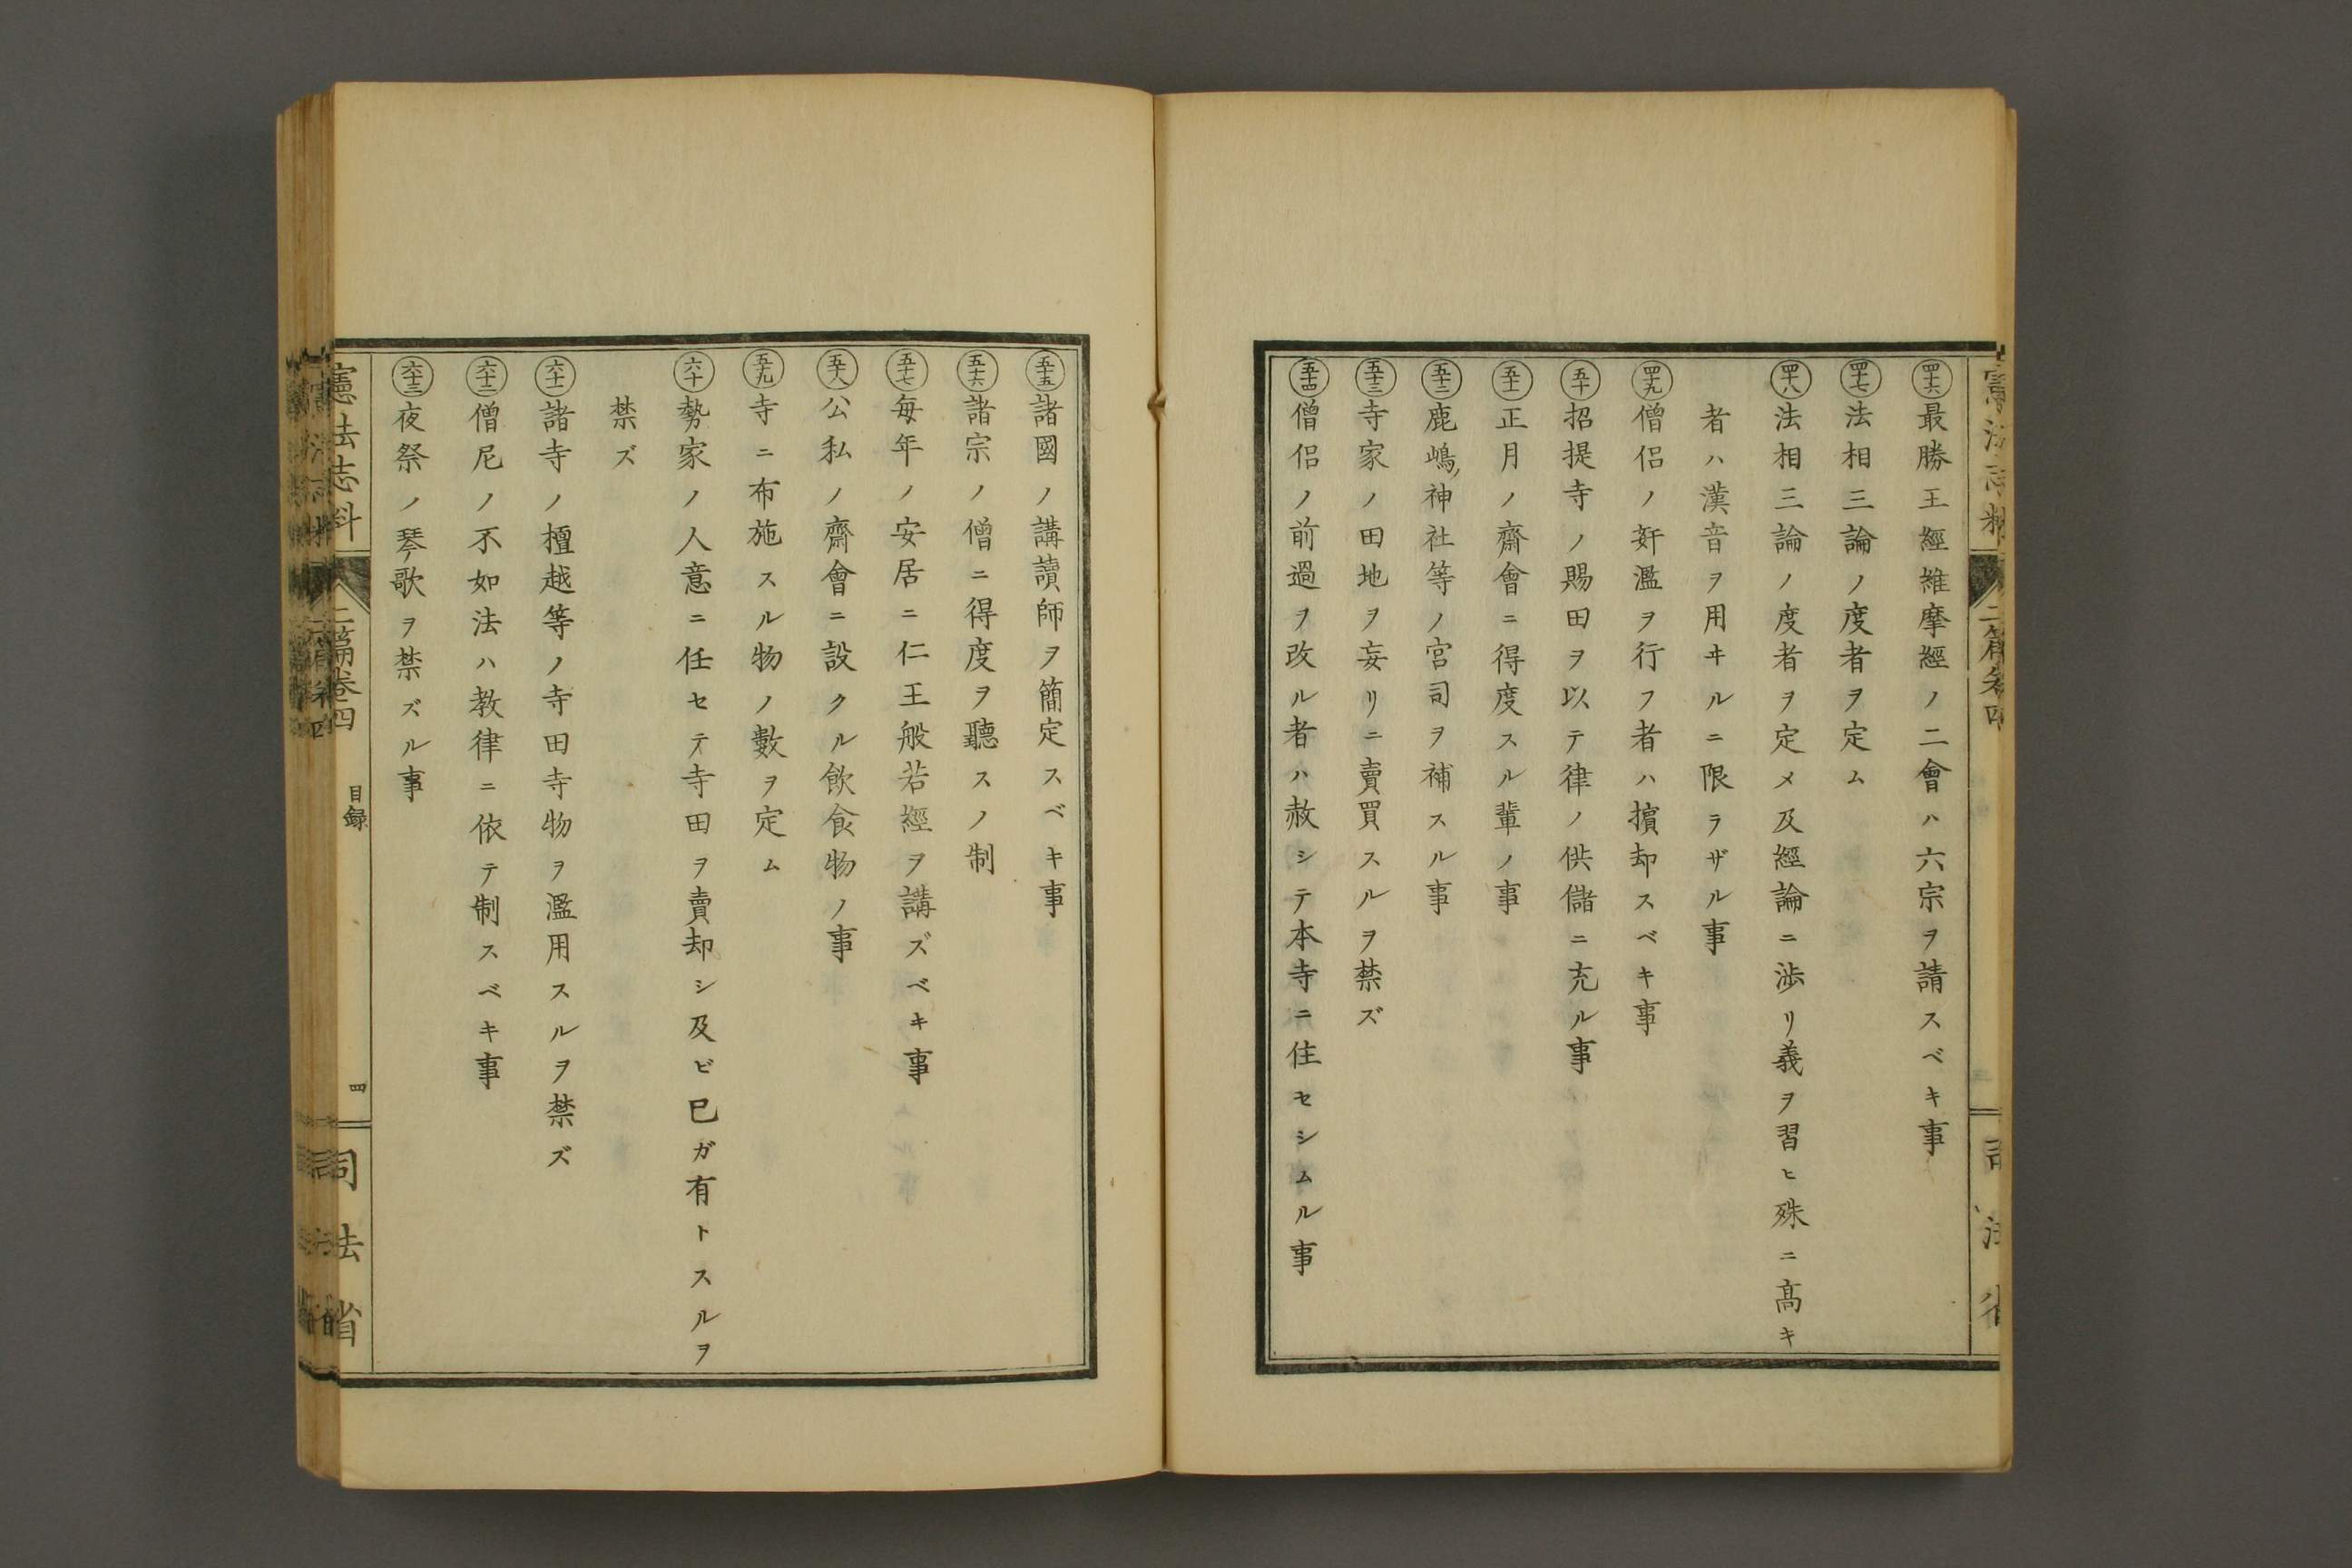 四十六 最勝王經維摩經ノ二會ハ六宗ヲ請スベキ事
四十七 法相三論ノ度者ヲ定ム
四十八 法相三論ノ度者ヲ定メ及經論ニ渉リ義ヲ習ヒ殊ニ髙キ
者ハ漢音ヲ用ヰルニ限ラザル事
四十九 僧侶ノ姧濫ヲ行フ者ハ擯却スベキ事
五十 招提寺ノ賜田ヲ以テ律ノ供儲ニ充ル事
五十一 正月ノ齋會ニ得度スル輩ノ事
五十二 鹿嶋神社等ノ宮司ヲ補スル事
五十三 寺家ノ田地ヲ妄リニ賣買スルヲ禁ズ
五十四 僧侶ノ前過ヲ改ル者ハ赦シテ本寺ニ住セシムル事
五十五 諸國ノ講讀師ヲ簡定スベキ事
五十六 諸宗ノ僧ニ得度ヲ聽スノ制
五十七 毎年ノ安居ニ仁王般若經ヲ講ズベキ事
五十八 公私ノ齋會ニ設クル飲食物ノ事
五十九 寺ニ布施スル物ノ數ヲ定ム
六十 勢家ノ人意ニ任セテ寺田ヲ賣却シ及ビ巳ガ有トスルヲ
禁ズ
六十一 諸寺ノ檀越等ノ寺田寺物ヲ濫用スルヲ禁ズ
六十二 僧尼ノ不如法ハ教律ニ依テ制スベキ事
六十三 夜祭ノ琴歌ヲ禁ズル事
憲法志料 二篇卷四 目録 四 司法省